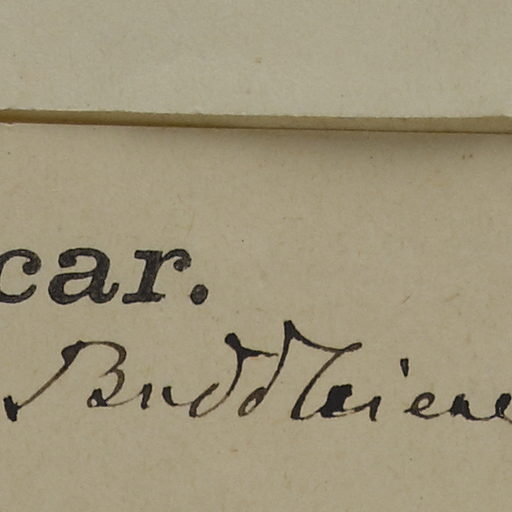 car.
Buddleieae